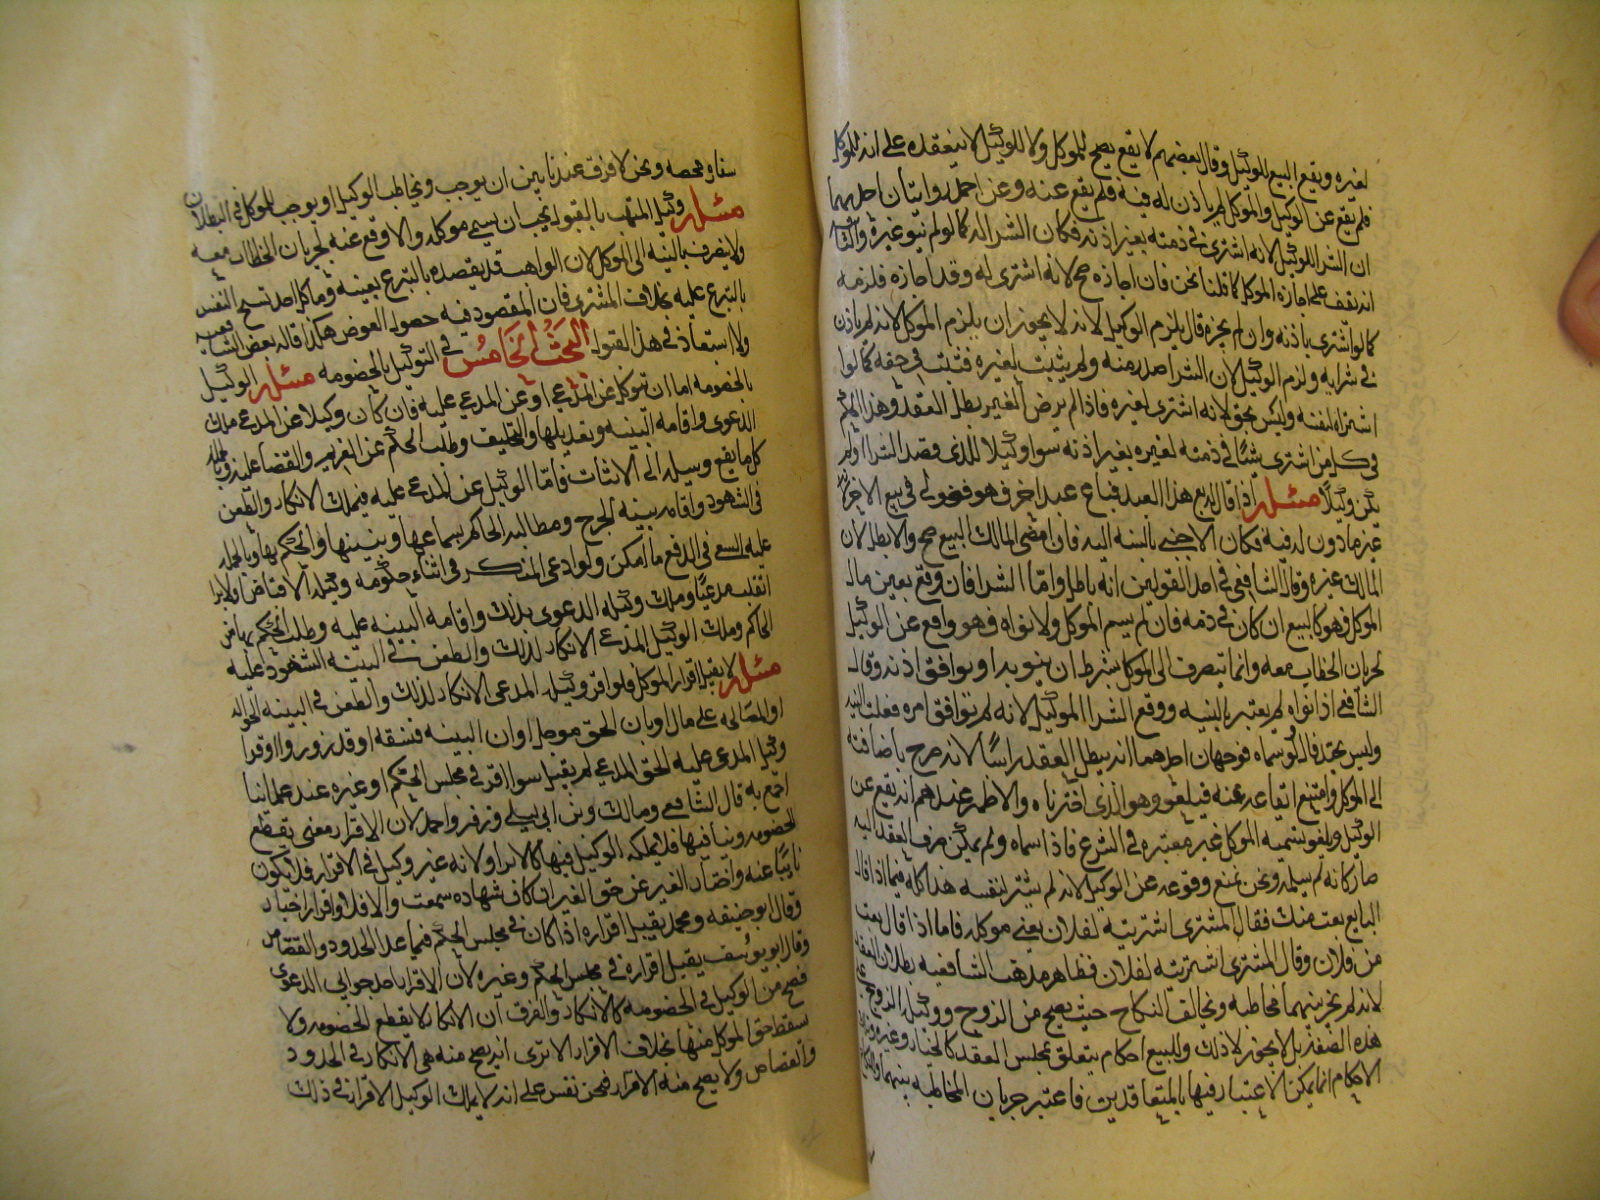 لغيره ويقع البيع للوكيل وقال بعضهم لا يقع يصح للموكل ولا للوكيل لانه عقده على انه للموكل
فلم يقع عن الوكيل والموكل لم ياذن له فيه فلم يقع عنه وعن احمد روايتان احديهما
ان الشرا للوكيل لانه اشترى في ذمته بغير اذنه فكان الشرا له كما لو لم ينو غيره والثانيه
انه يقف على اجازه الموكل كما قلنا نحن فان اجازه صح لانه اشترى له وقد اجازه فلزمه
كما لو اشترى باذنه وان لم يجزه قال يلزم الوكيل لانه لا يجوز ان يلزم الموكل لانه لم ياذن
في شرايه ولزم الوكيل لان الشرا صدر منه ولم يثبت لغيره فثبت في حقه كما لو
اشتراه لنفسه وليس بحق لانه اشترى لغيره فاذا لم يرض الغير بطل العقد وهذا الحكم
في كل من اشترى شيًا في ذمته لغيره بغير اذنه سوا وكيلا للذى قصد الشرا او لم
يكن وكيلًا مسئله اذا قال بع هذا العبد فباع عبدا اخر فهو فضولي في بيع الاخر لانه
غير ماذون له فيه فكان الاجنبي بالنسبه اليه فان امضى المالك البيع صح والا بطل لان
المالك غيره وقال الشافعي في احد القولين انه باطل وامّا الشرا فان وقع بعين مال
الموكل فهو كالبيع ان كان في ذمه فان لم يسم الموكل ولا نواه فهو واقع عن الوكيل
لجريان الخطاب معه وانما ينصرف الى الموكل بشرط ان ينويه او يوافق اذنه وقال
الشافعي اذا نواه لم يعتبر بالنيه ووقع الشرا للوكيل لانه لم يوافق امره فعلت النيه
وليس بجيد فان سماه فوجهان احدهما انه يبطل العقد راسًا لانه صرح باضافته
الى الموكل وامتنع ايقاعه عنه فيلغو وهو الذى اخترناه والاظهر عندهم انه يقع عن
الوكيل ويلغو تسميه الموكل غير معتبره في الشرع فاذا سماه ولم يمكن صرف العقد اليه
صار كانه لم يسمه ونحن نمنع وقوعه عن الوكيل لانه لم يشتر لنفسه هذا كله فيما اذا قال
البايع بعت منك فقال المشترى اشتريته لفلان يعنى موكله فاما اذا قال بعت
من فلان وقال المشترى اشتريته لفلان فظاهر مذهب الشافعيه بطلان العقد
لانه لم تجر بينهما مخاطبه ويخالف النكاح حيث يصح من الزوج ووكيل الزوج على
هذه الصفه بل لا يجوز الا ذلك وللبيع احكام يتعلق بمجلس العقد كالخيار وغيره
الاحكام انما يمكن الاعتبار فيها بالمتعاقدين فاعتبر جريان المخاطبه بينهما والنكاح
سفاره محضه ونحن لا فرق عندنا بين ان يوجب ويخاطب الوكيل او يوجب للموكل في البطلان
مسئله وكيل المتهب بالقبول يجب ان يسمي موكله والا وقع عنه لجريان الخطاب معه
ولا ينصرف بالنيه الى الموكل لان الواهب قد يقصده بالتبرع بعينه وما كل احد تسمح النفس
بالتبرع عليه بخلاف المشترى فان المقصود فيه حصول العوض هكذا قاله بعض الشافعيه
ولا استبعاد في هذا القول البحث الخامس في التوكيل بالخصومه مسئله الوكيل
بالخصومه اما ان يتوكل عن المدعي او عن المدعي عليه فان كان وكيلا عن المدعي ملك
الدعوى واقامه البينه وتعديلها والتحليف وطلب الحكم عن الغريم والقضا عليه وبالجمله
كل ما يقع وسيله الى الاثبات فامّا الوكيل عن المدعي عليه فيملك الانكار والطعن
في الشهود واقامه بينه الجرح ومطالبه الحاكم بسماعها وبينتها والحكم بها وبالجمله
عليه السعي في الدفع ما امكن ولو ادعى المنكر في اثناء حكومه وكيله الاقباض او الابرا
انقلب مدعيًا وملك وكيله الدعوى بذلك واقامه البينه عليه وطلب الحكم بها من
الحاكم وملك الوكيل المدعي الانكار لذلك والطعن في البينه الشهود عليه
مسئله لا يقبل اقرار الموكل فلو اقر وكيل المدعى الانكار لذلك والطعن في البينه الحواله
او المصالحه على مال او بان الحق موجل او ان البينه فسقه او قد زوروا او قرا
وكيل المدعى عليه الحق للمدعي لم يقبل سوا اقر في مجلس الحكم او غيره عند علمائنا
اجمع به قال الشافعي ومالك وبن ابي ليلى وزفر واحمد لان الاقرار معنى يقطع
الخصومه وينافيها فلا يملكه الوكيل فيها كالابرا ولانه غير وكيل في الاقرار فلا يكون
نايبًا عنه واخبار الغير عن حق الغير ان كان شهاده سمعت والا فلا واقرار اخبار
وقال ابو حنيفه ومحمد يقبل اقراره اذا كان في مجلس الحكم فيما عدا الحدود والقصاص
وقال ابو يوسف يقبل اقراره في مجلس الحكم وغيره لان الاقرار احد جوابي الدعوى
فصح من الوكيل في الخصومه كالانكار والفرق ان الانكار لا يقطع الخصومه ولا
يسقط حق الموكل منها بخلاف الاقرار الا ترى انه يصح منه هى الانكار في الحدود
والقصاص ولا يصح منه الاقرار فنحن نقس على انه لا يملك الوكيل الاقرار في ذلك